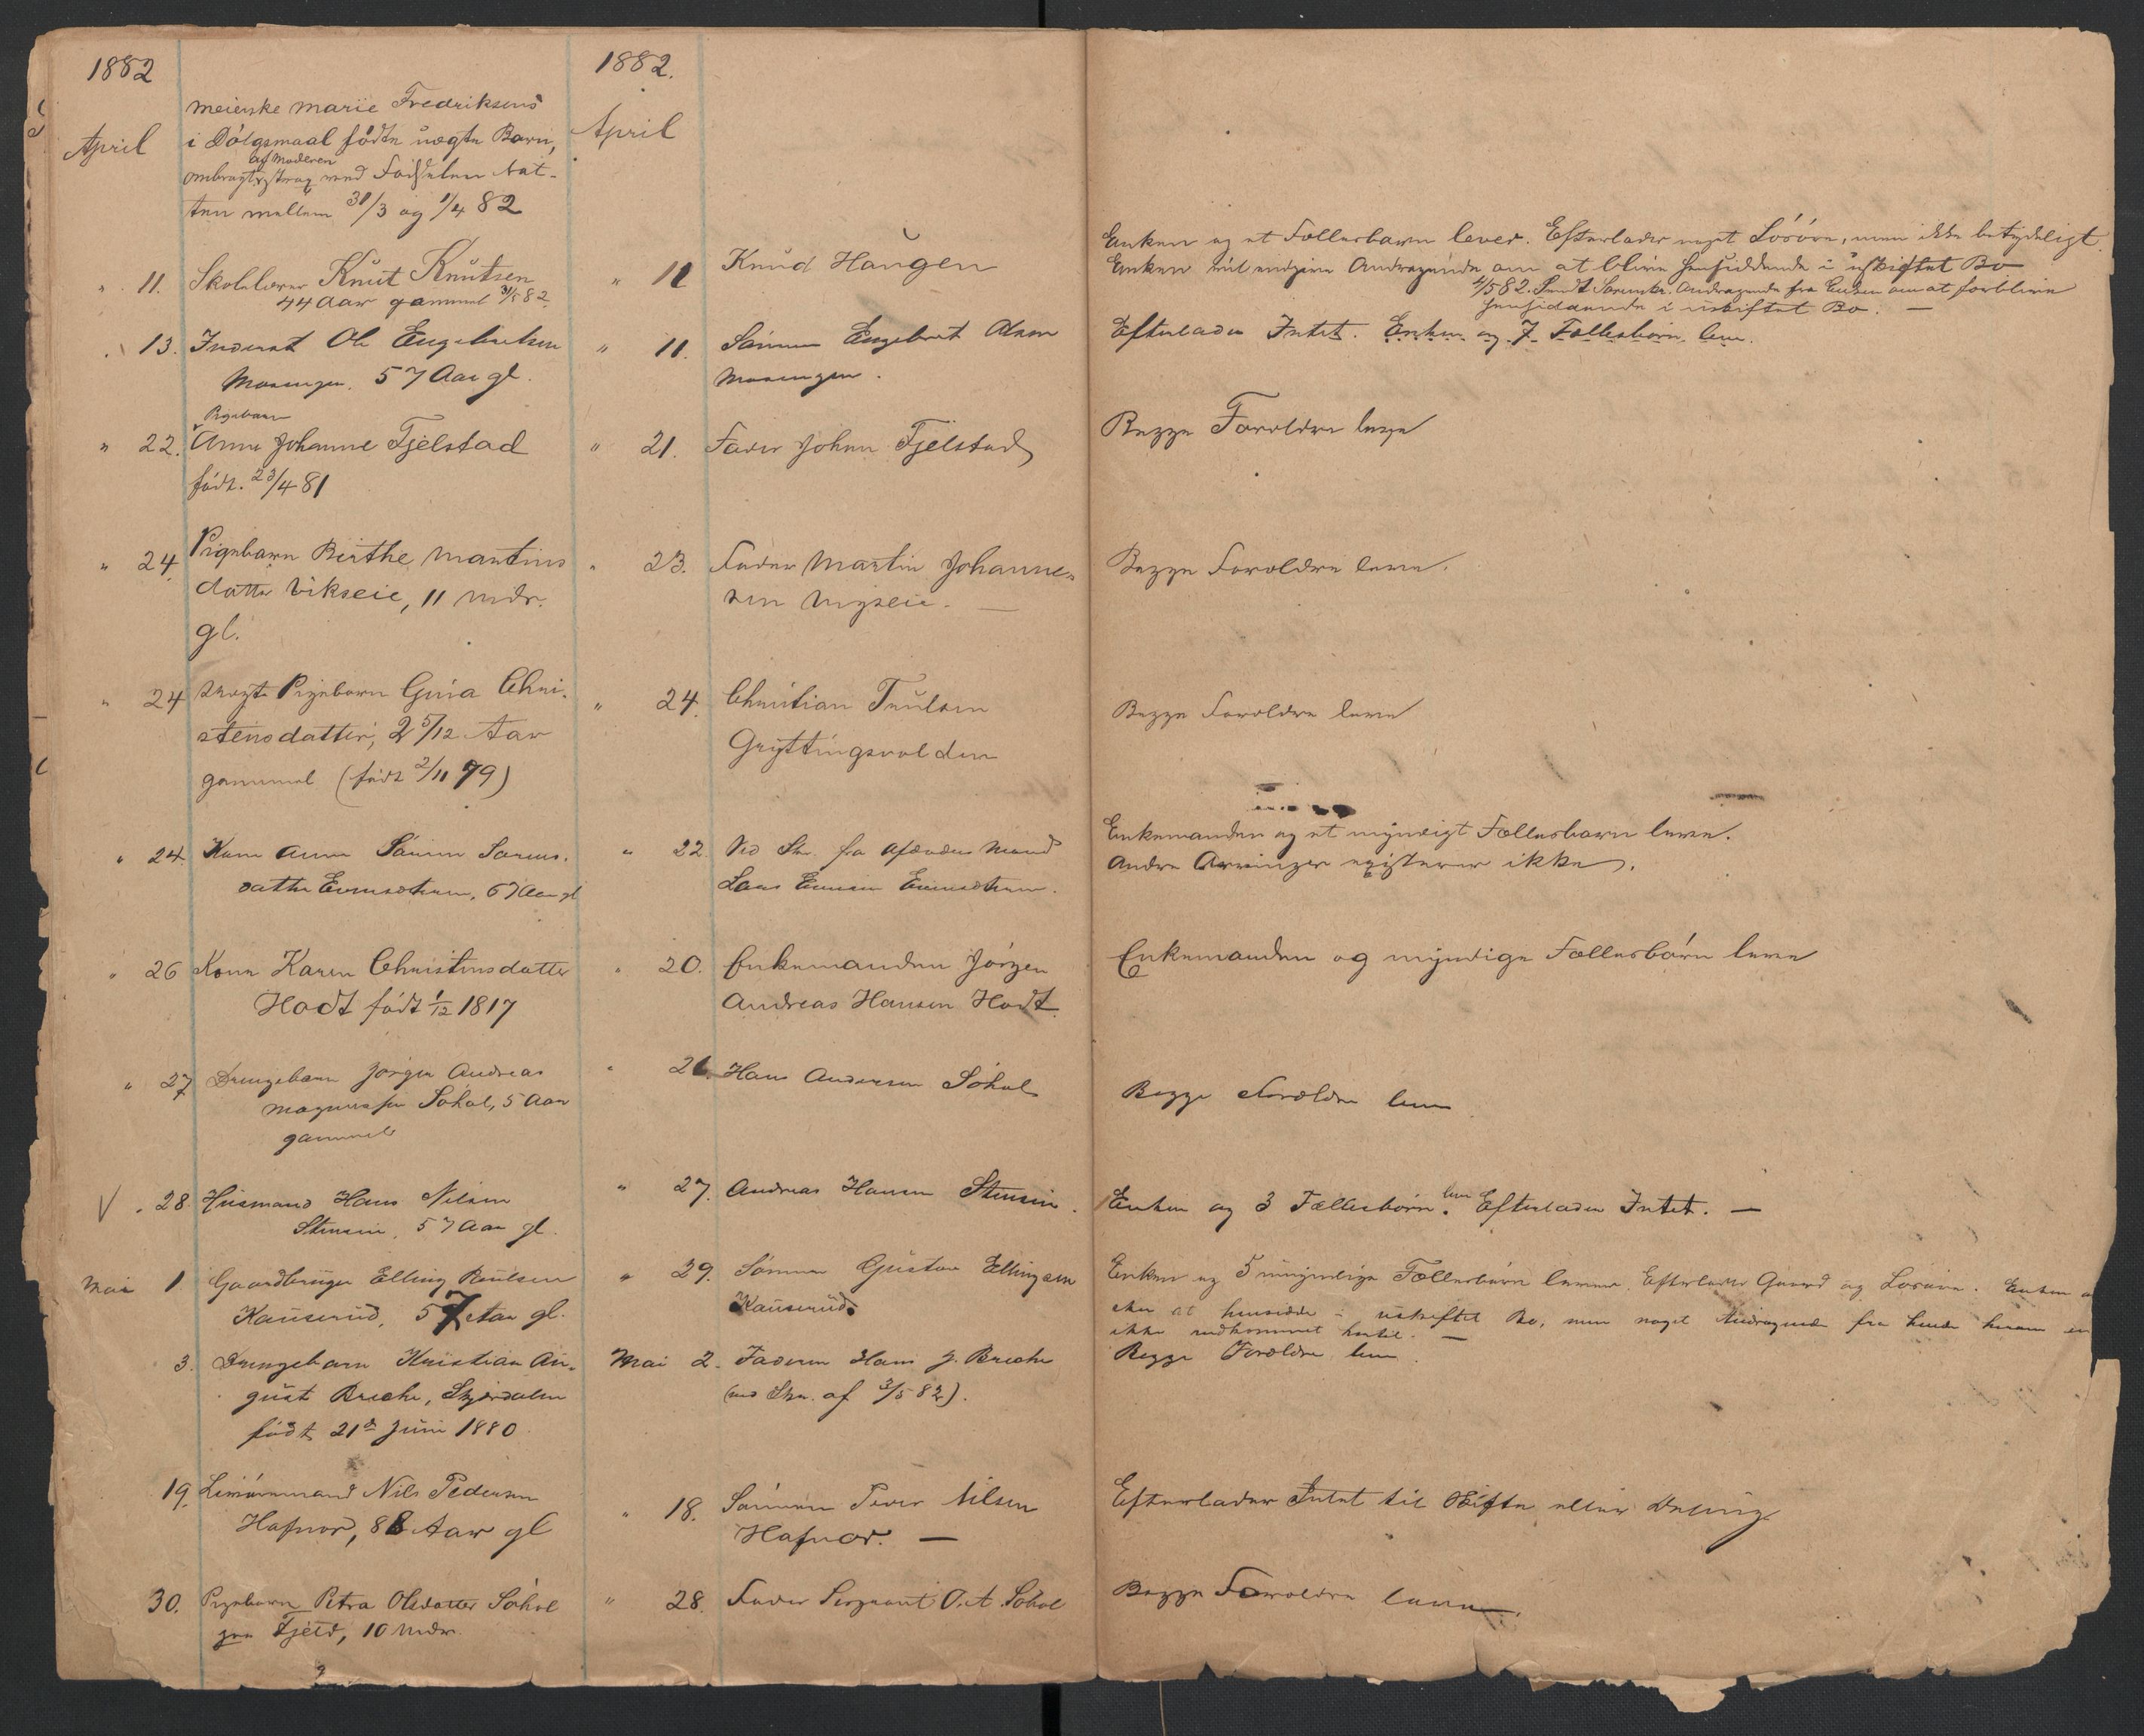 1882
1882.
April
Meierske Marie Fredriksens
i Dølgsmaal fødte uægte Barn,
af Moderen
ombragt strax med Fødselen Nat-
ten mellem 31/3 og 1/4 82
April
" 11. Skolelærer Knut Knutsen
44 Aar gammel
" 11 Knud Haugen
Enken og et Fællesbarn lever. Efterlader noget Løsøre, men ikke betydeligt.
Enken vil indgive Andragende om at blive hensiddende i uskiftet Bo
4/5 82. Sendt Sorenskr. Andragende fra Enken om at forblive
hensiddende i uskiftet Bo. —
" 13. Inderst Ole Engebretsen
Moningen. 57 Aar gl.
" 11. Sønnen Engebret Olsen
Moningen.
Efterlader Intet. Enken og 7 Fællesbørn leve.
Pigebarn
" 22. Anne Johanne Fjelstad
født. 23/4 81
" 21. Fader Johan Fjelstad
Begge Forældre leve
" 24. Pigebarn Birthe Martins
datter Vikseie, 11 Mdr.
gl.
" 23. Fader Martin Johanne-
sen Myseie. —
Begge Forældre leve.
" 24 uægte Pigebarn Guia Chri-
stensdatter, 2 5/12 Aar
gammel (født 2/11 79)
" 24. Christian
Gryttingsvolden
Begge Forældre leve
" 24. Kone Anne
datter 67 Aar gl
" 22. Ved Skr. fra Afdødes Mand
Lars
Enkemanden og et myndigt Fællesbarn leve.
Andre Arvinger existerer ikke.
" 26 Kone Karen Christensdatter
Hodt født 1/12 1817
" 20. Enkemanden Jørgen
Andreas Hansen Hodt.
Enkemanden og myndige Fællesbørn leve
" 27 Drengebarn Jørgen Andreas
Magnussen Søhol, 5 Aar
gammel
" 26. Hans Andersen Søhol
Begge Forældre leve
V " 28 Husmand Hans Nilsen
57 Aar gl.
" 27. Andreas Hansen
leve
Enken og 3 Fællesbørn. Efterlader Intet. —
Mai 1 Gaardbruger Elling Paulsen
Kauserud, 57 Aar gl.
" 29. Sønnen Gustav Ellingsen
Kauserud.
Enken og 5 umyndige Fællesbørn leve. Efterlader Gaard og Løsøre. Enken
at hensidde i uskiftet Bo, men noget Andragende fra hende herom er
ikke indkommet hertil. —
3. Drengebarn Kristian Au-
gust
født 21de Juni 1880
Mai 2. Faderen Hans J.
(ved Skr. af 3/5 82).
Begge Forældre leve.
19. Nils Pedersen
Hafnor, 88 Aar gl
" 18. Sønnen Peder Nilsen
Hafnor. —
Efterlader Intet til Skifte eller Deling
30. Pigebarn Petra Olsdatter Søhol
Fjeld, 10 Mdr.
" 28. Fader Sergeant O. A. Søhol
Begge Forældre leve.